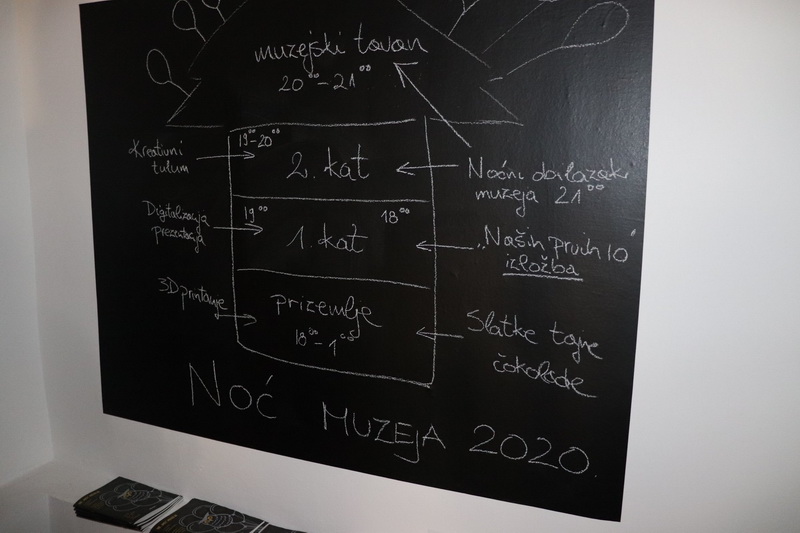 muzejski tavan
20⁰⁰-21⁰⁰
Kreativni
tulum
19⁰⁰-20⁰⁰
2. kat
Noćni obilazak
muzeja 21⁰⁰
Digitalizacija
prezentacija
19⁰⁰
18⁰⁰
1. kat
"Naših prvih 10"
izložba
3D printanje
prizemlje
18⁰⁰-1⁰⁰
Slatke tajne
čokolade
NOĆ MUZEJA 2020.